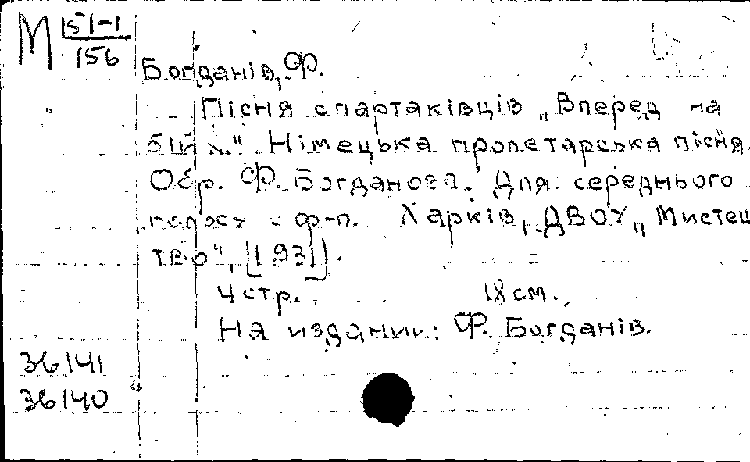 М 151-1
156
Богданів, Ф.
Пісня спартаківців „Вперед на
бій..." Німецька пролетарська пісня.
Обр. Ф. Богданова. Для середнього
голосу і ф-п. Харків, ДВОУ „Мистец
тво", [1931].
4 стр. 18 см.
На издании: Ф. Богданів.
36141
36140